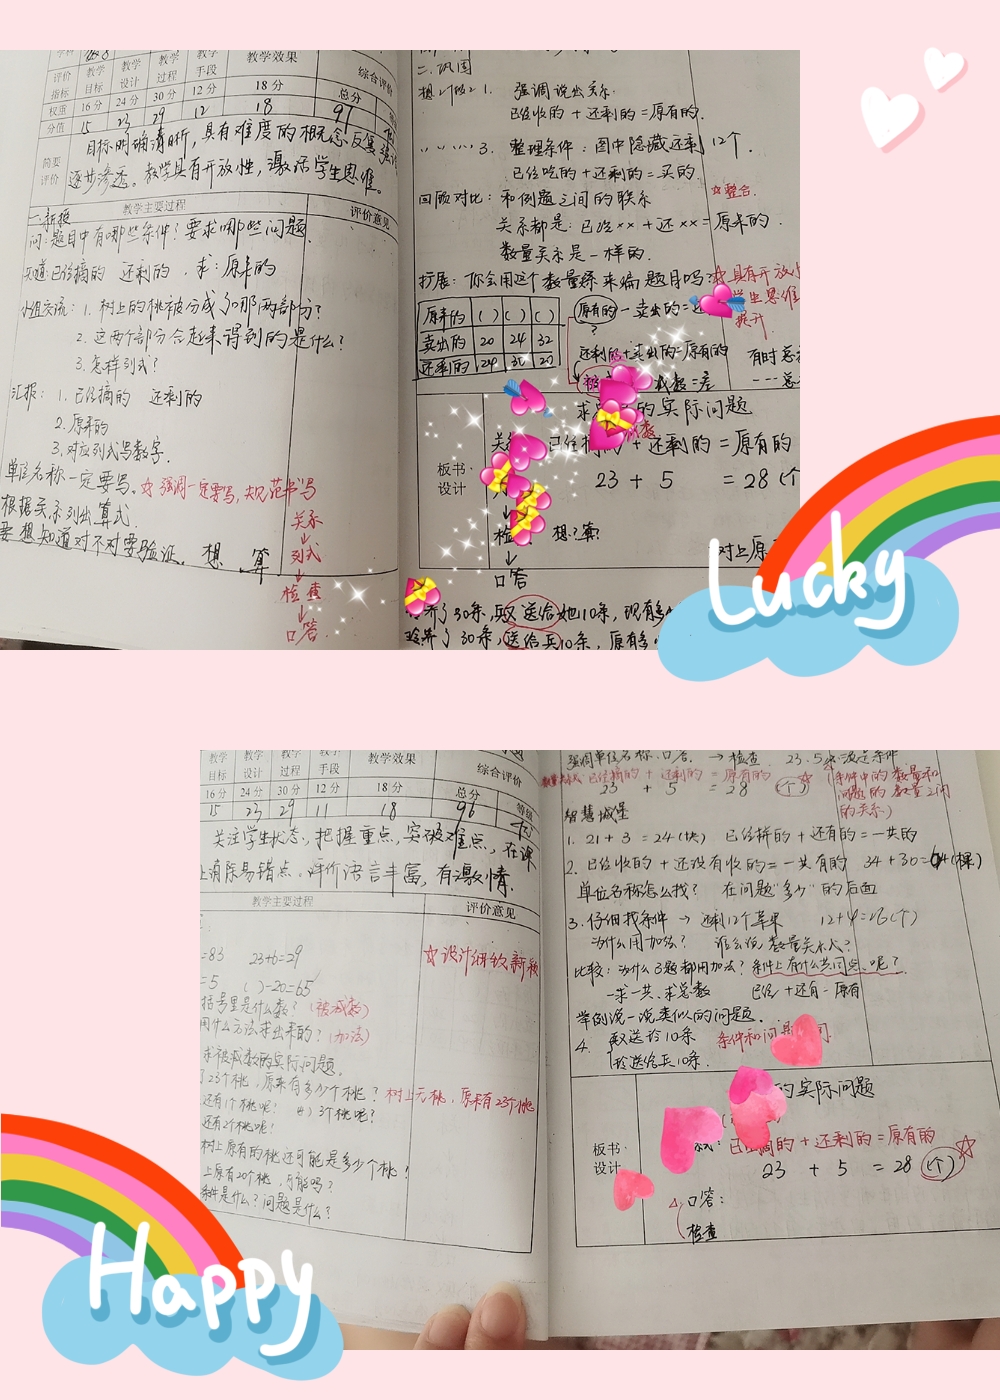 评价指标 教学目标 教学设计 教学过程 教学手段 教学效果 综合评价
权重 16分 24分 30分 12分 18分 总分
分值 15 23 29 12 18 97
简要评价
目标明确清晰,具有难度的概念反复强
逐步渗透。教学具有开放性,激活学生思维。
教学主要过程 评价意见
一.新授
问:题目中有哪些条件?要求哪些问题.
知道:已经摘的 还剩的 ,求:原来的
小组交流:1.树上的桃被分成了哪两部分?
2.这两个部分合起来得到的是什么?
3.怎样列式?
汇报:1.已经摘的 还剩的
2.原来的
3.对应列式写数字.
单位名称一定要写。☆强调一定要写,规范书写
根据关系列出算式.
要想知道对不对要验证。想,算
关系
↓
列式
↓
检查
↓
口答.
二.巩固
想想做做1. 强调说出关系.
已经收的+还剩的=原有的.
〃〃〃〃3. 整理条件:图中隐藏还剩12个.
已经吃的+还剩的=买的.
回顾对比:和例题之间的联系 ☆整合.
关系都是:已经××+还××=原来的.
数量关系是一样的.
扩展:你会用这个数量关系来编题目吗?
☆具有开放
学生思维
提升.
原来的 ( ) ( ) ( )
卖出的 20 24 32
还剩的 24 30 20
原有的-卖出的=还
还剩的+卖出的=原有的
减数=差
有时总
的实际问题
板书设计
还剩的=原有的
23 + 5 =28
想?算?
对上原
口答
养了30条,取送给她10条,现有多
玲养了30条,送给兵10条,原有多
Lucky
教学目标 教学设计 教学过程 教学手段 教学效果 综合评价
16分 24分 30分 12分 18分 总分 等级
15 23 29 11 18 96 优
关注学生状态,把握重点,突破难点,在课
上消除易错点.评价语言丰富,有激情.
教学主要过程 评价意见
=83 23+6=29
☆设计细致新
=5 ( )-20=65
括号里是什么数?(被减数)
用什么方法求出来的?(加法)
求被减数的实际问题,
了23个桃,原来有多少个桃?树上无桃,原来有23个桃
还有1个桃呢? 3个桃呢?
还有2个桃呢?
树上原有的桃还可能是多少个桃!
上原有20个桃,可能吗?
条件是什么?问题是什么?
强调单位名称.口答. → 检查 23.5
已经摘的 + 还剩的 = 原有的
23 + 5 = 28 (个)☆
(条件中的数量和
问题的数量之间
的关系)
智慧城堡
1. 21+3=24(块) 已经拼的+还有的=一共的
2. 已经收的+还没有收的=一共有的 34+30=64(棵)
单位名称怎么找? 在问题"多少"的后面
3.仔细找条件 → 还剩12个苹果
为什么用加法? 谁会说数量关系式?
比较:为什么3题都用加法?条件上有什么共同点呢?
一求一共.求总数 已经+还有=原有
举例说一说类似的问题.
4. 取送玲10条 条件和问
玲送给兵10条.
的实际问题
板书·设计
已经摘的+还剩的=原有的
23 + 5 =28(个)☆
口答:
检查
Happy